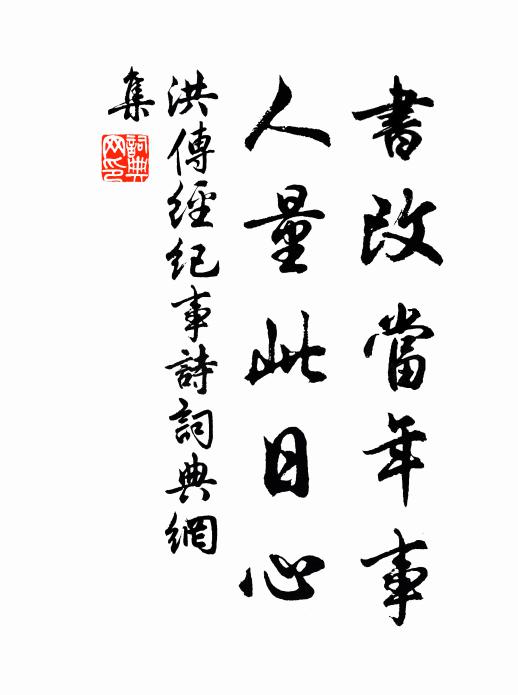 書改當年事
人量此日心
洪傳經紀事詩詞典網
集
詞典
网印